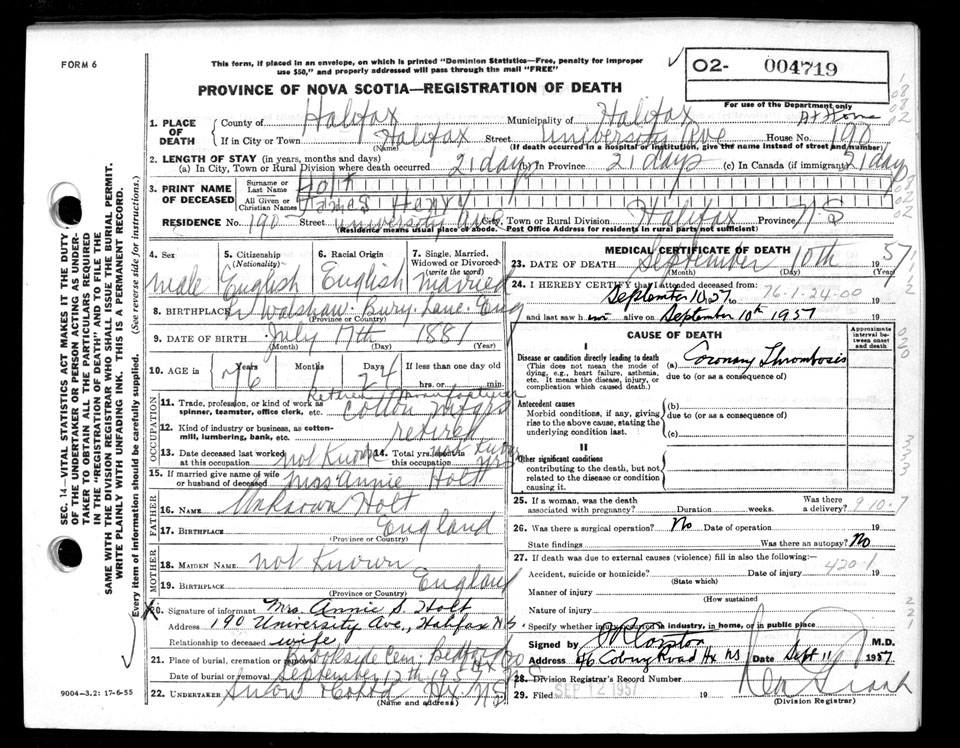 FORM 6
This form, if placed in an envelope, on which is printed "Dominion Statistics—Free, penalty for improper
use $50," and properly addressed will pass through the mail "FREE"
02- 004719
PROVINCE OF NOVA SCOTIA—REGISTRATION OF DEATH
For use of the Department only
At Home
1. PLACE OF DEATH { County of Halifax Municipality of Halifax
If in City or Town Halifax Street University Ave House No. 190
(Name) (If death occurred in a hospital or institution, give the name instead of street and number)
2. LENGTH OF STAY (in years, months and days)
(a) In City, Town or Rural Division where death occurred 21 days (b) In Province 21 days (c) In Canada (if immigrant) 21 days
3. PRINT NAME OF DECEASED { Surname or Last Name Holt
All Given or Christian Names James Henry
RESIDENCE No. 190 Street University Ave City, Town or Rural Division Halifax Province N-S
(Residence means usual place of abode. Post Office Address for residents in rural parts not sufficient)
4. Sex 5. Citizenship (Nationality) 6. Racial Origin 7. Single, Married, Widowed or Divorced (write the word)
male English English married
8. BIRTHPLACE Walshaw. Bury. Lanc. Eng
(Province or Country)
9. DATE OF BIRTH July 17th 1881
(Month) (Day) (Year)
10. AGE in { Years 76 Months 1 Days 24 If less than one day old
hrs. or min.
OCCUPATION
11. Trade, profession, or kind of work as spinner, teamster, office clerk, etc. Retired Manufacturer
12. Kind of industry or business, as cotton-mill, lumbering, bank, etc. retired
13. Date deceased last worked at this occupation not Known 14. Total yrs. spent in this occupation
15. If married give name of wife or husband of deceased Annie Holt
FATHER
16. NAME Unknown Holt
17. BIRTHPLACE England
(Province or Country)
MOTHER
18. MAIDEN NAME not Known
19. BIRTHPLACE England
(Province or Country)
20. Signature of informant Mrs. Annie S. Holt
Address 190 University Ave., Halifax N S
Relationship to deceased wife
21. Place of burial, cremation or removal Brookside Cem. Bedford
Date of burial or removal September 12th 1957
22. UNDERTAKER Snow Hx N S
(Name and address)
9004—3.2: 17-6-55
SEC. 14—VITAL STATISTICS ACT MAKES IT THE DUTY
OF THE UNDERTAKER OR PERSON ACTING AS UNDER-
TAKER TO OBTAIN ALL THE PARTICULARS REQUIRED
IN THE "REGISTRATION OF DEATH" AND TO FILE THE
SAME WITH THE DIVISION REGISTRAR WHO SHALL ISSUE THE BURIAL PERMIT.
WRITE PLAINLY WITH UNFADING INK. THIS IS A PERMANENT RECORD.
Every item of information should be carefully supplied. (See reverse side for instructions.)
MEDICAL CERTIFICATE OF DEATH
23. DATE OF DEATH September 10th 1957
(Month) (Day) (Year)
24. I HEREBY CERTIFY that I attended deceased from:
September 10, 57 to 76-1-24-00 19
and last saw h im alive on September 10th 1957
CAUSE OF DEATH
Approximate interval between onset and death
I
Disease or condition directly leading to death
(This does not mean the mode of dying, e.g., heart failure, asthenia, etc. It means the disease, injury, or complication which caused death.)
(a) Coronary Thrombosis
due to (or as a consequence of)
Antecedent causes
Morbid conditions, if any, giving rise to the above cause, stating the underlying condition last.
(b)
due to (or as a consequence of)
(c)
II
Other significant conditions
contributing to the death, but not related to the disease or condition causing it.
25. If a woman, was the death associated with pregnancy? Duration weeks. Was there a delivery? 9-10-7
26. Was there a surgical operation? No Date of operation 19
State findings Was there an autopsy? No
27. If death was due to external causes (violence) fill in also the following:—
420-1
Accident, suicide or homicide? Date of injury 19
(State which)
Manner of injury
(How sustained
Nature of injury
Specify whether injury occurred in industry, in home, or in public place
Signed by M.D.
Address 46 Coburg Road Hx NS Date Sept 11 1957
28. Division Registrar's Record Number
29. Filed SEP 12 1957 19
(Division Registrar)